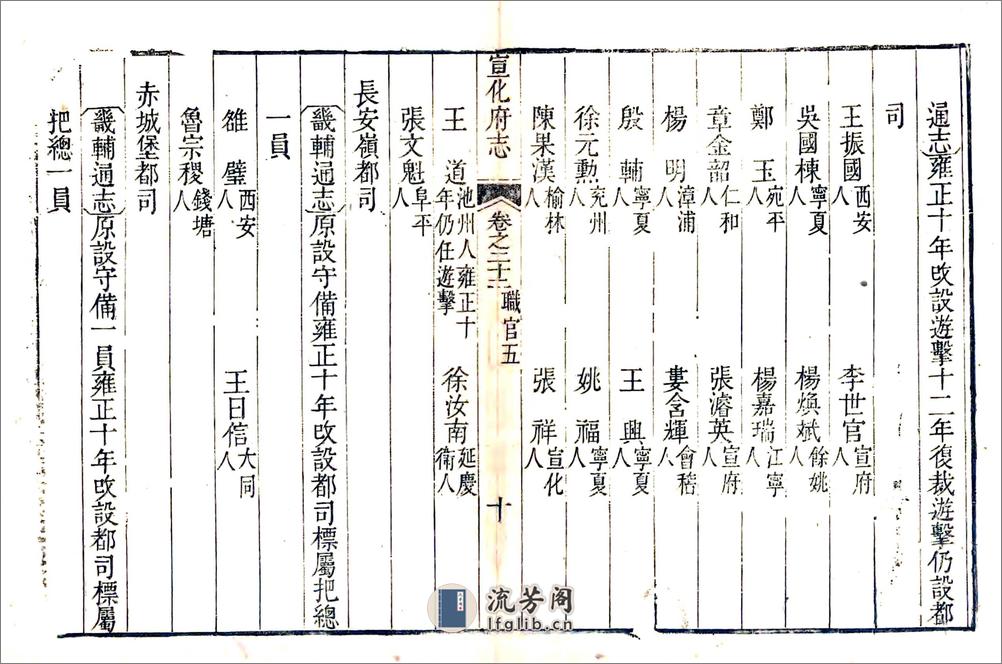 通志雍正十年改設遊擊十二年復裁遊擊仍設都
司
王振國西安人 李世官宣府人
吳國棟寧夏人 楊煥斌餘姚人
鄭玉宛平人 楊嘉瑞江寧人
章金韶仁和人 張濬英宣府人
楊明漳浦人 婁含輝會稽人
殷輔寧夏人 王興寧夏人
徐元勲兖州人 姚福寧夏人
陳果漢榆林人 張祥宣化人
宣化府志 卷之二十二 職官五 十
王道池州人雍正十年仍任遊擊 徐汝南延慶衛人
張文魁阜平人
長安嶺都司
畿輔通志原設守備雍正十年改設都司標屬把總
一員
雒璧西安人 王日信大同人
魯宗稷錢塘人
赤城堡都司
畿輔通志原設守備一員雍正十年改設都司標屬
把總一員
流芳阁
lfglib.cn